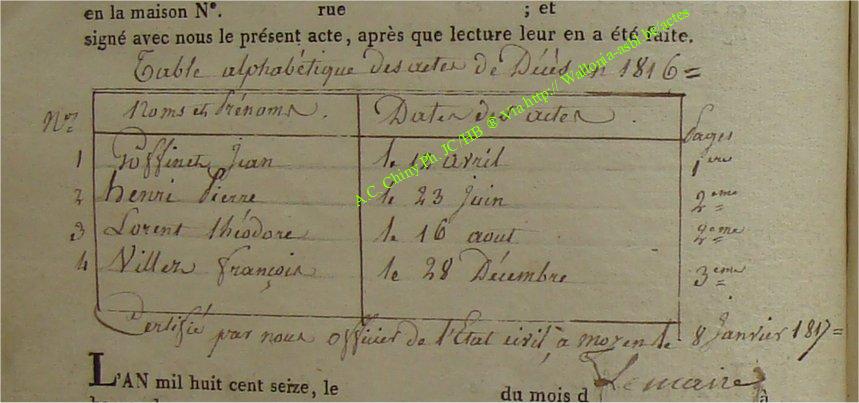 en la maison N°. rue ; et
signé avec nous le présent acte, après que lecture leur en a été faite.
Table alphabétique des actes de Décès, 1816=
Nos Noms et Prénoms. Dates des actes. Pages
1 Goffinet Jean le avril 1ere
2 henri Pierre le 23 Juin 2eme
3 Lorent théodore le 16 aout 2eme
4 Viller françois le 28 Décembre 3eme
Certifié par nous officier de l'Etat civil, a moyen le 8 Janvier 1817=
Lemaire
L'AN mil huit cent seize, le du mois d à
A.C. Chiny Ph. JC/HB @ Via http:// Wallonia-asbl.be/actes